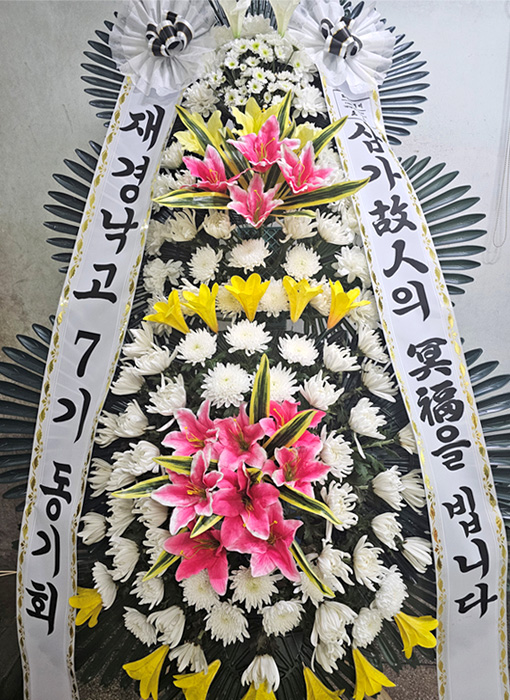 재경낙고 7기 동기회
삼가 故人의 冥福을 빕니다